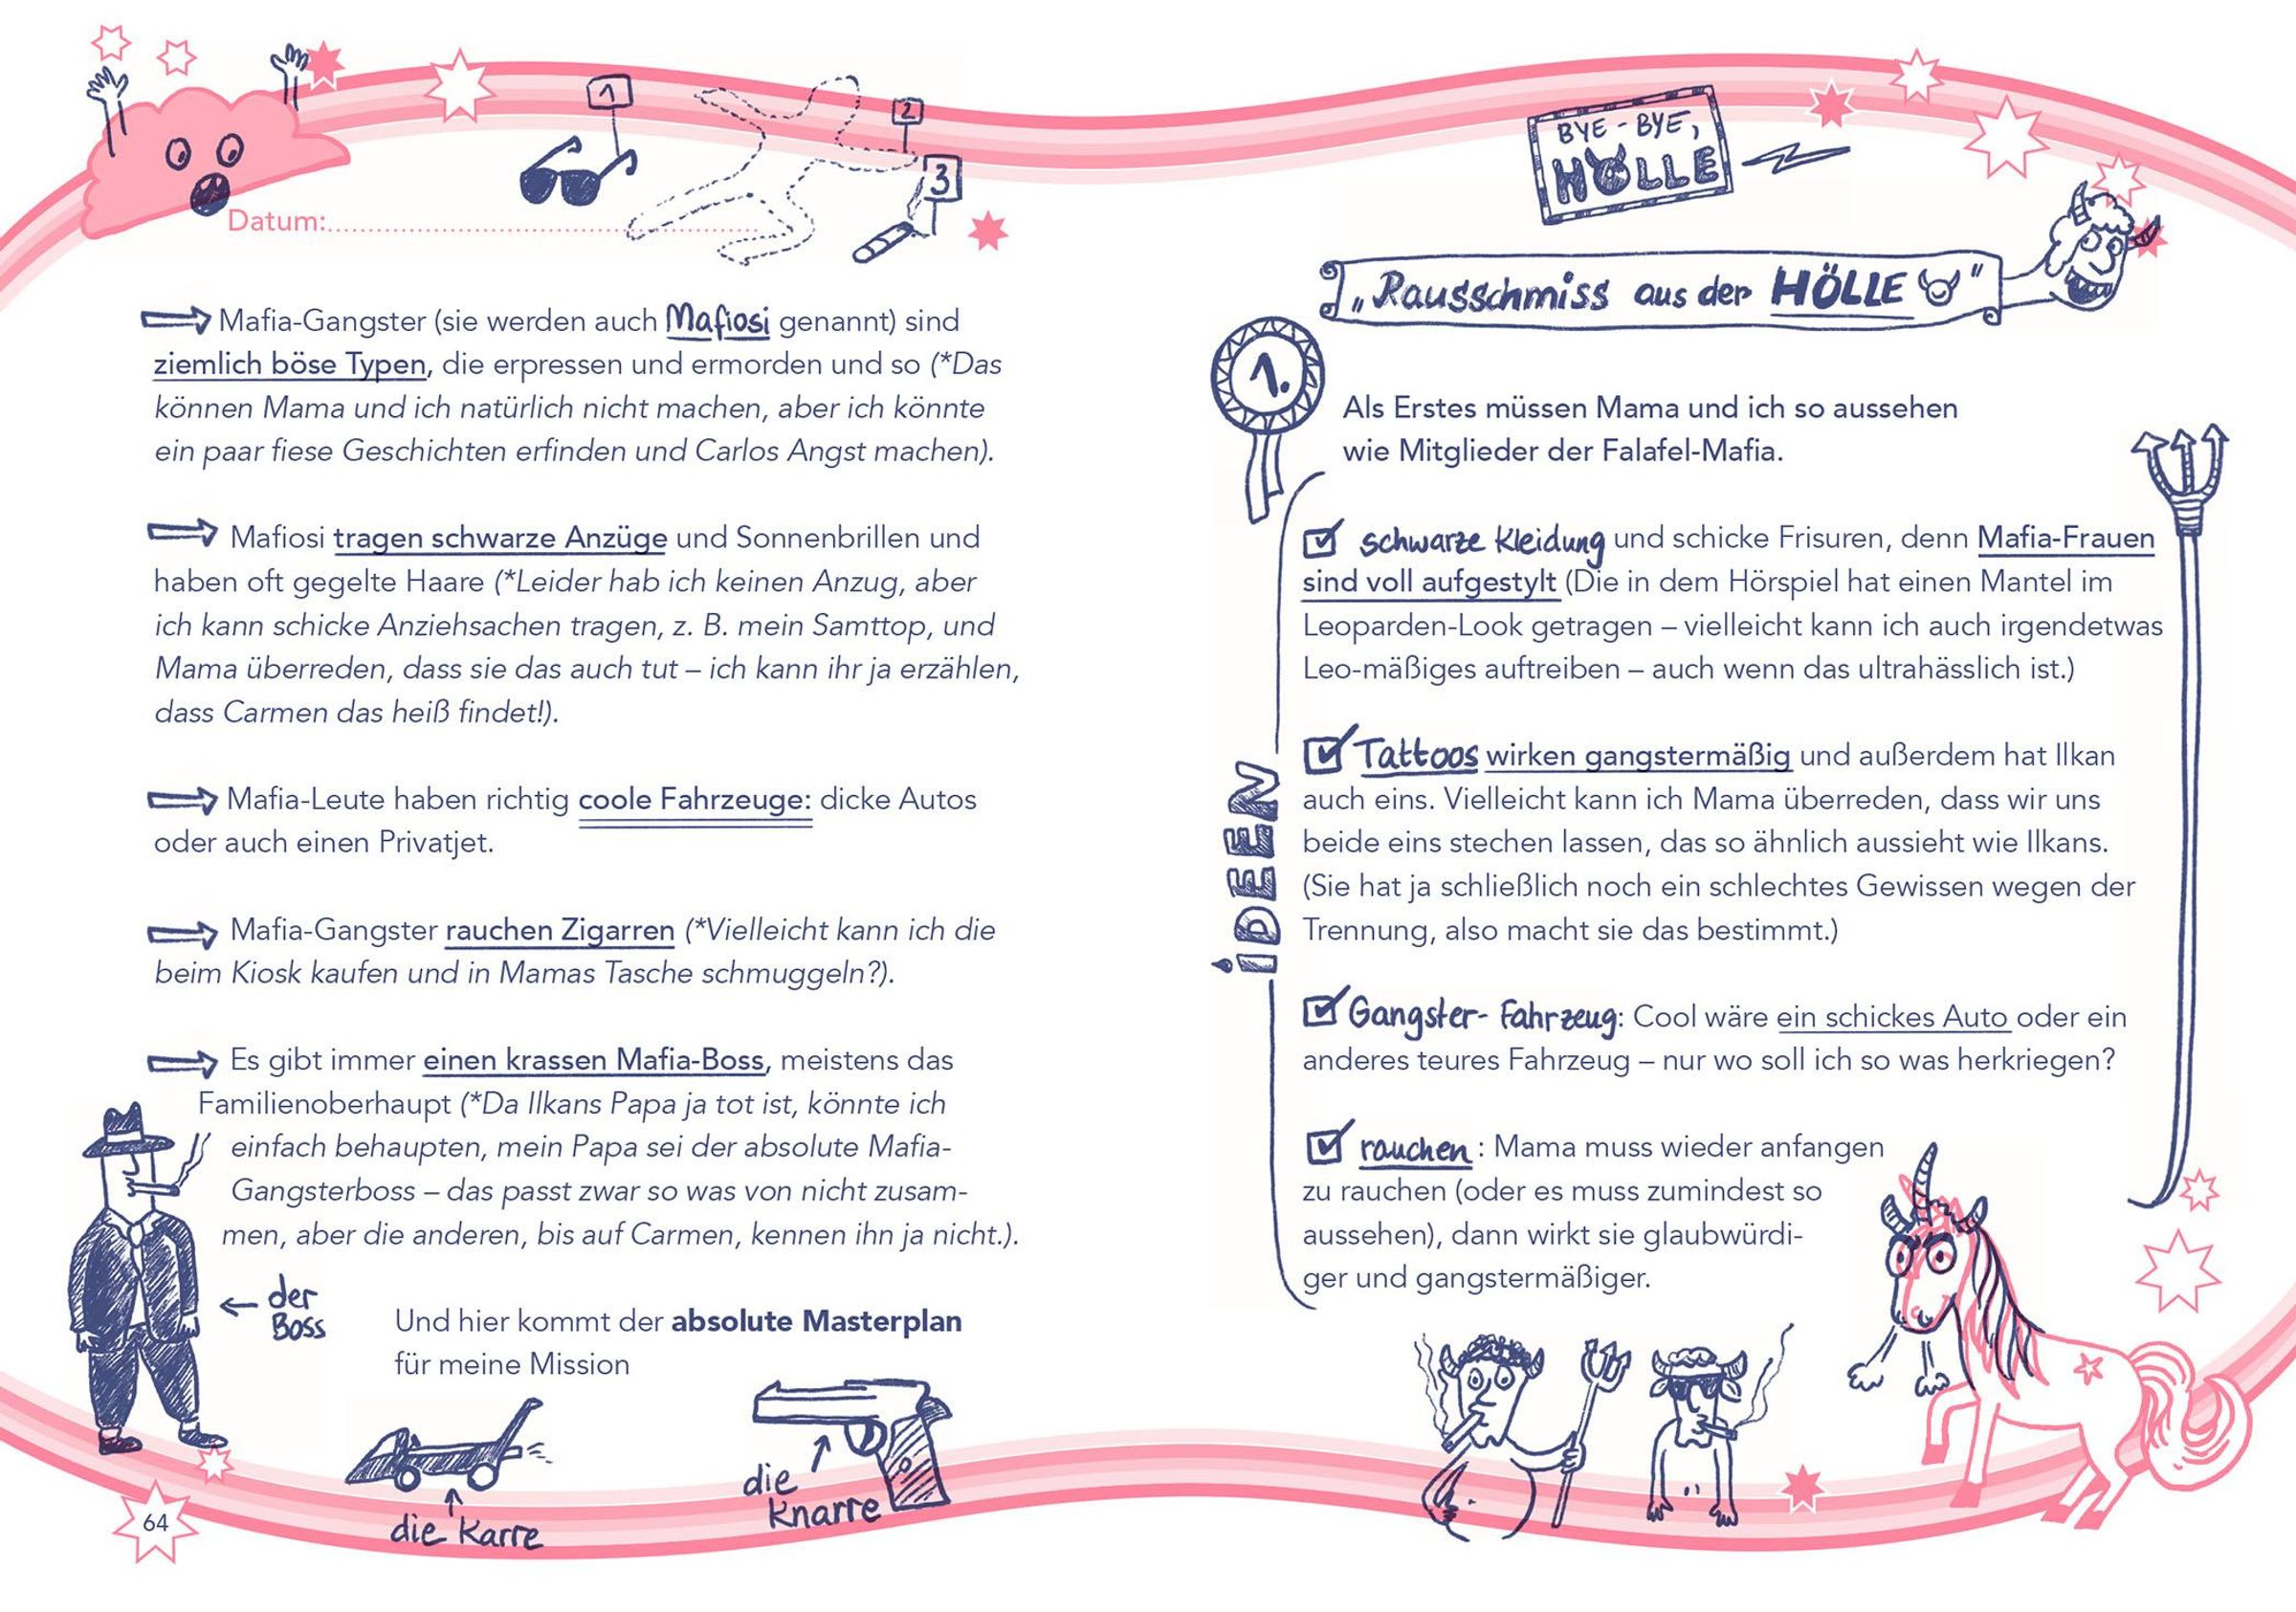 Datum:
1
2
3
Mafia-Gangster (sie werden auch Mafiosi genannt) sind
ziemlich böse Typen, die erpressen und ermorden und so (*Das
können Mama und ich natürlich nicht machen, aber ich könnte
ein paar fiese Geschichten erfinden und Carlos Angst machen).
Mafiosi tragen schwarze Anzüge und Sonnenbrillen und
haben oft gegelte Haare (*Leider hab ich keinen Anzug, aber
ich kann schicke Anziehsachen tragen, z. B. mein Samttop, und
Mama überreden, dass sie das auch tut – ich kann ihr ja erzählen,
dass Carmen das heiß findet!).
Mafia-Leute haben richtig coole Fahrzeuge: dicke Autos
oder auch einen Privatjet.
Mafia-Gangster rauchen Zigarren (*Vielleicht kann ich die
beim Kiosk kaufen und in Mamas Tasche schmuggeln?).
Es gibt immer einen krassen Mafia-Boss, meistens das
Familienoberhaupt (*Da Ilkans Papa ja tot ist, könnte ich
einfach behaupten, mein Papa sei der absolute Mafia-
Gangsterboss – das passt zwar so was von nicht zusam-
men, aber die anderen, bis auf Carmen, kennen ihn ja nicht.).
der
Boss
Und hier kommt der absolute Masterplan
für meine Mission
die Karre
die
Knarre
64
BYE-BYE,
HÖLLE
„Rausschmiss aus der HÖLLE"
1.
Als Erstes müssen Mama und ich so aussehen
wie Mitglieder der Falafel-Mafia.
IDEEN
schwarze Kleidung und schicke Frisuren, denn Mafia-Frauen
sind voll aufgestylt (Die in dem Hörspiel hat einen Mantel im
Leoparden-Look getragen – vielleicht kann ich auch irgendetwas
Leo-mäßiges auftreiben – auch wenn das ultrahässlich ist.)
Tattoos wirken gangstermäßig und außerdem hat Ilkan
auch eins. Vielleicht kann ich Mama überreden, dass wir uns
beide eins stechen lassen, das so ähnlich aussieht wie Ilkans.
(Sie hat ja schließlich noch ein schlechtes Gewissen wegen der
Trennung, also macht sie das bestimmt.)
Gangster-Fahrzeug: Cool wäre ein schickes Auto oder ein
anderes teures Fahrzeug – nur wo soll ich so was herkriegen?
rauchen: Mama muss wieder anfangen
zu rauchen (oder es muss zumindest so
aussehen), dann wirkt sie glaubwürdi-
ger und gangstermäßiger.